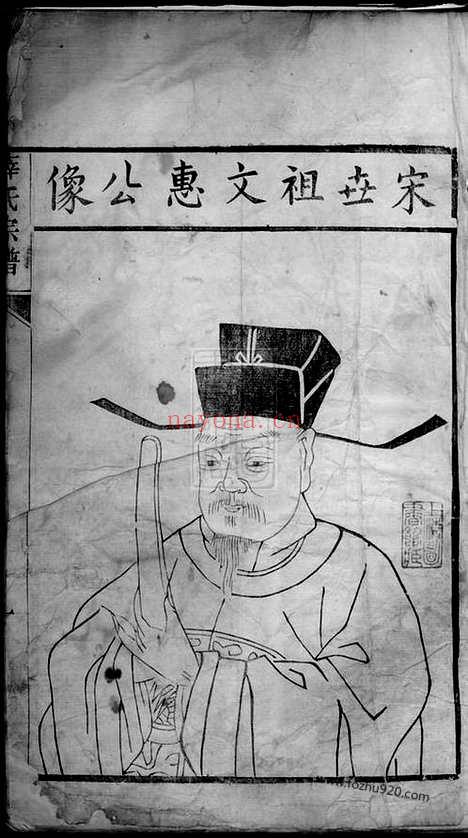 宋世祖文惠公像
薛氏宗譜
nayona.cn
www.fozhu920.com